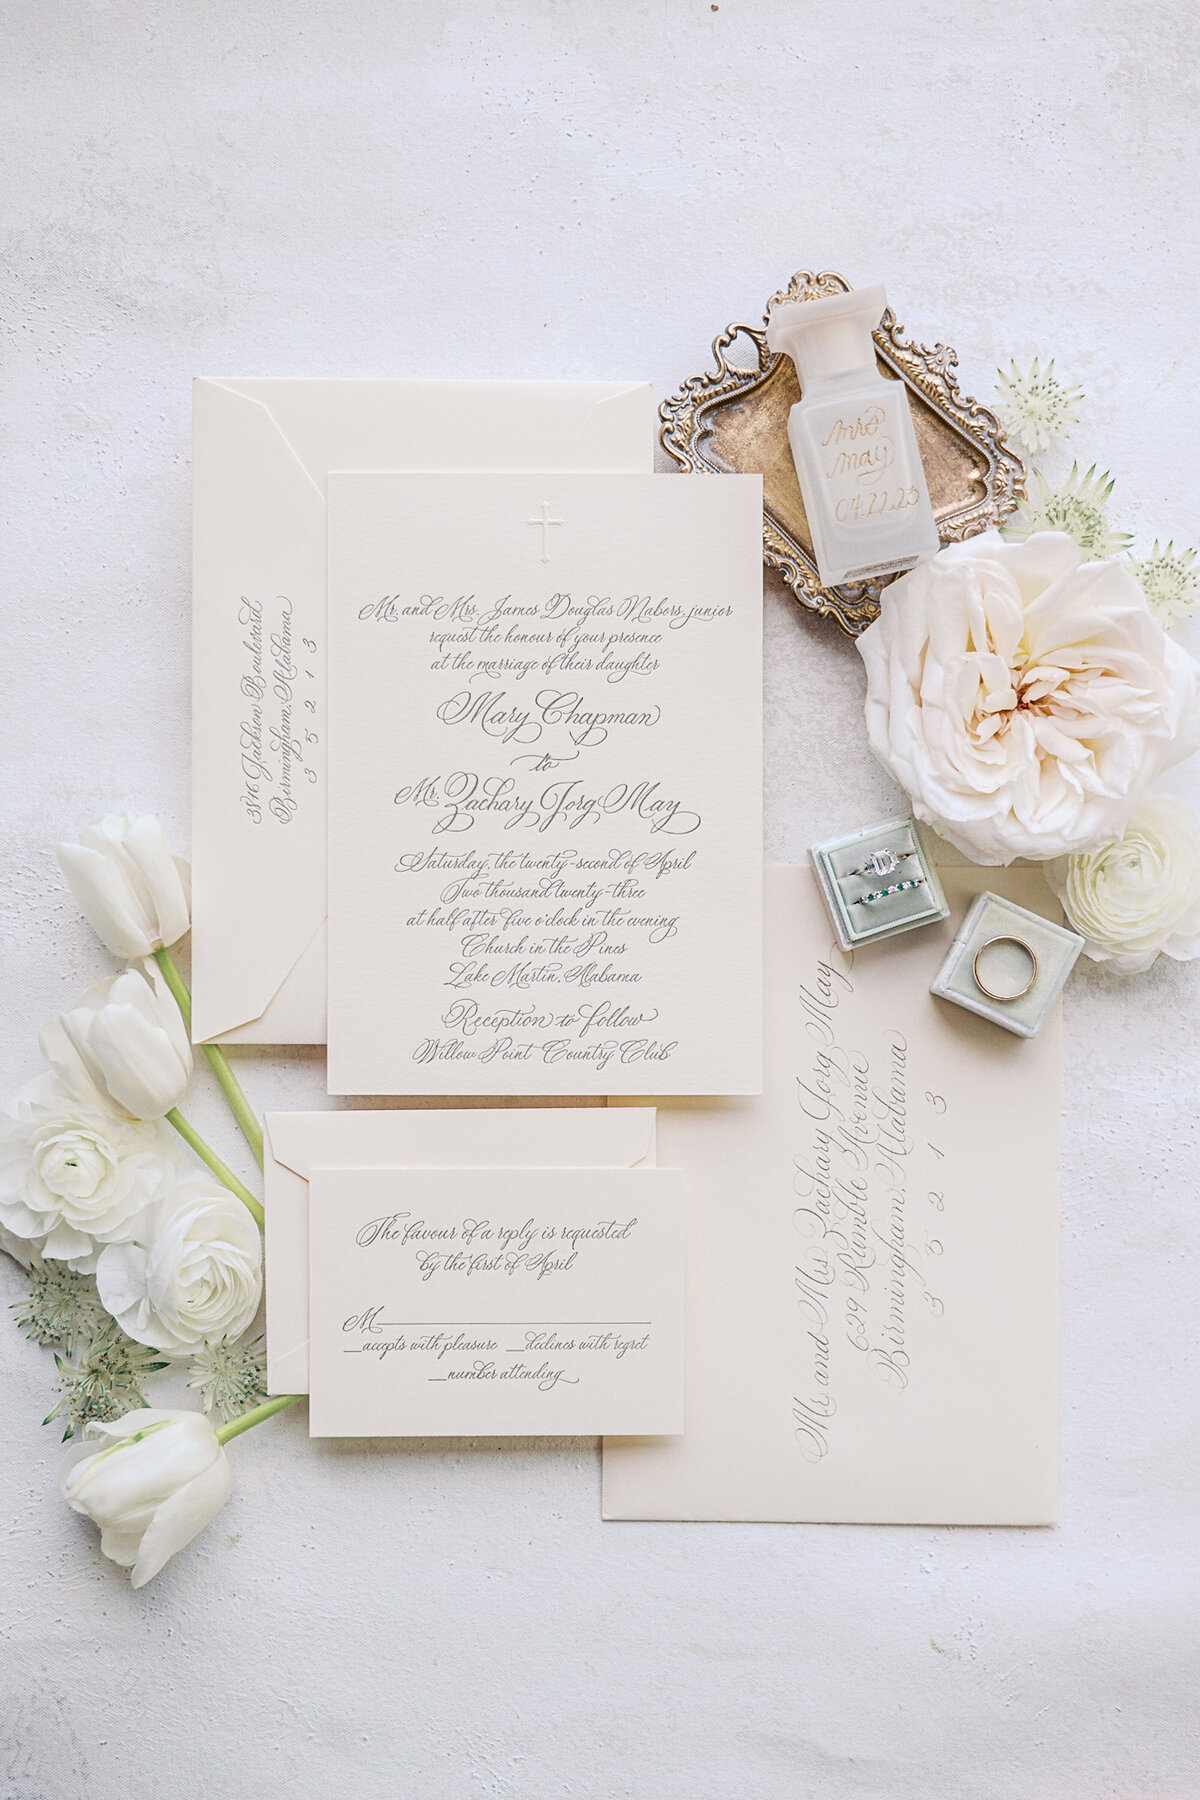 mrs
may
04.22.23
3816 Jackson Boulevard
Birmingham, Alabama
3 5 2 1 3
Mr. and Mrs. James Douglas Nabors, junior
request the honour of your presence
at the marriage of their daughter
Mary Chapman
to
Mr. Zachary Jorg May
Saturday, the twenty-second of April
Two thousand twenty-three
at half after five o'clock in the evening
Church in the Pines
Lake Martin, Alabama
Reception to follow
Willow Point Country Club
The favour of a reply is requested
by the first of April
M
accepts with pleasure declines with regret
number attending
Mr. and Mrs. Zachary Jorg May
629 Ramble Avenue
Birmingham, Alabama
3 5 2 1 3